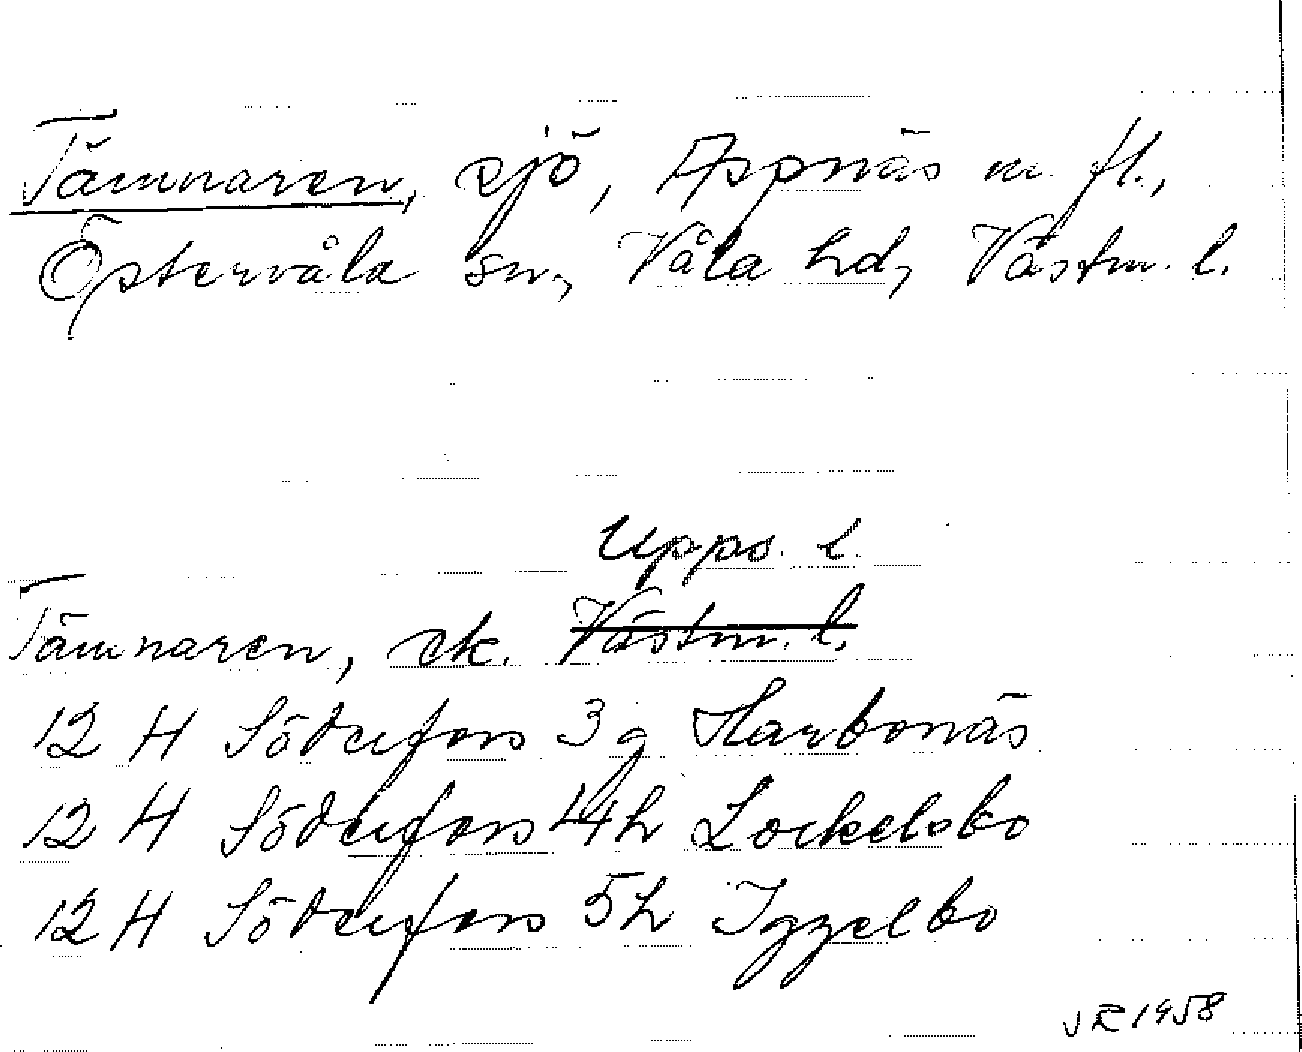 Tämnaren, sjö, Aspnäs m. fl.,
Östervåla sn., Våla hd, Västm. l.
Upps. l.
Tämnaren, ek. Västm. l.
12 H Söderfors 3 g Harbonäs
12 H Söderfors 4 h Lockelsbo
12 H Söderfors 5 h Iggelbo
VR 1958